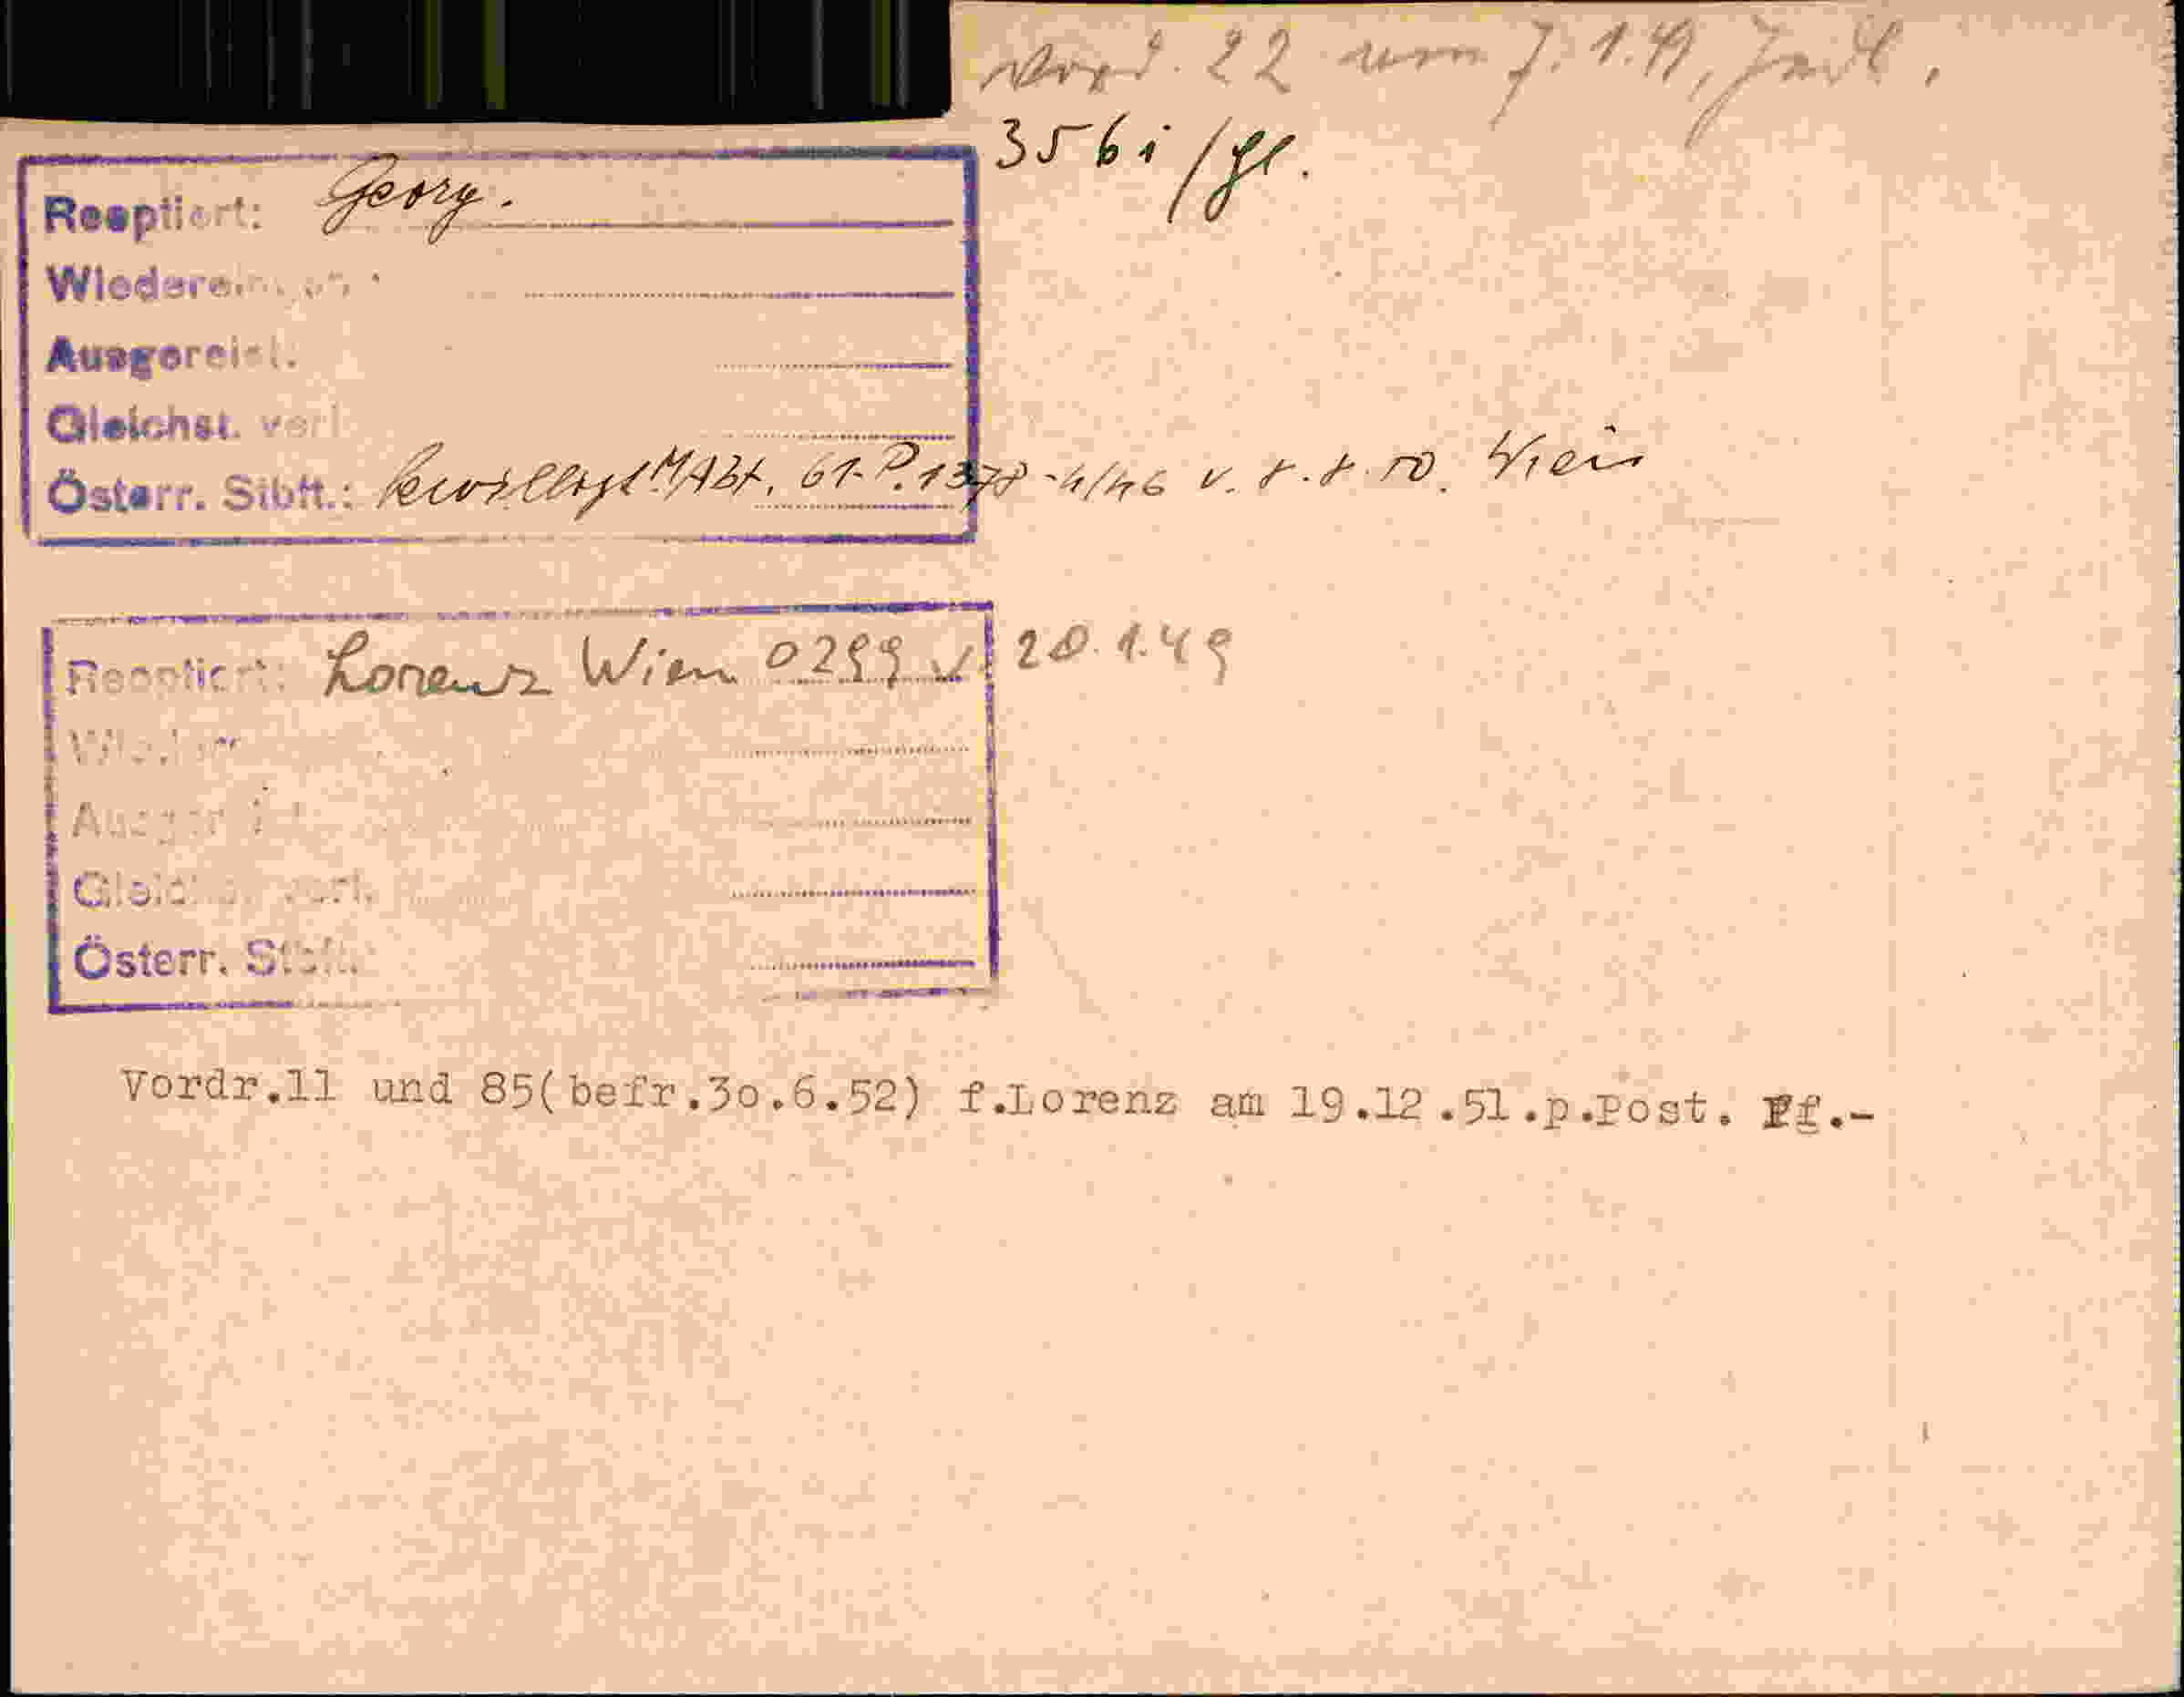 Vord. 22 vom 7. 1. 49,
356i /gl.
Reoptiert: Georg.
Wiedereing
Ausgereist.
Gleichst. verl
Österr. Stbft.: bewilligt M.Abt. 61-P.1378-4/46 v. 8.8.50. Wien
Reoptiert: Lorenz Wien 0299 v. 20.1.49
Gleichst. verl.
Österr. Stbft.:
Vordr.11 und 85(befr.3o.6.52) f.Lorenz am 19.12.51.p.Post. Ff.-